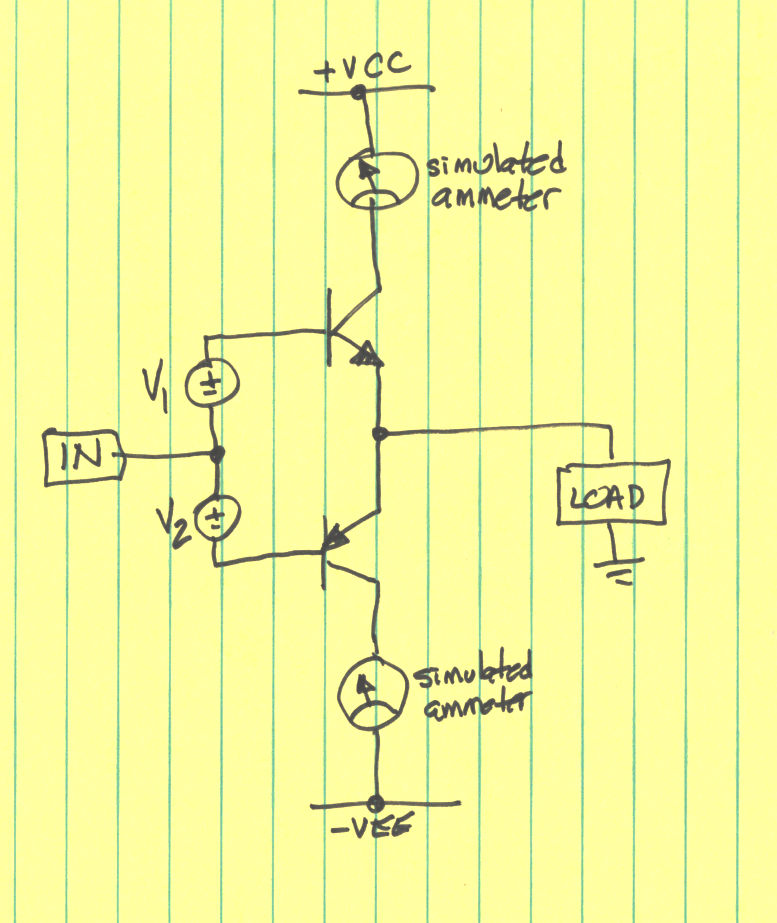 +VCC
simulated
ammeter
V1
IN
V2
LOAD
simulated
ammeter
-VEE